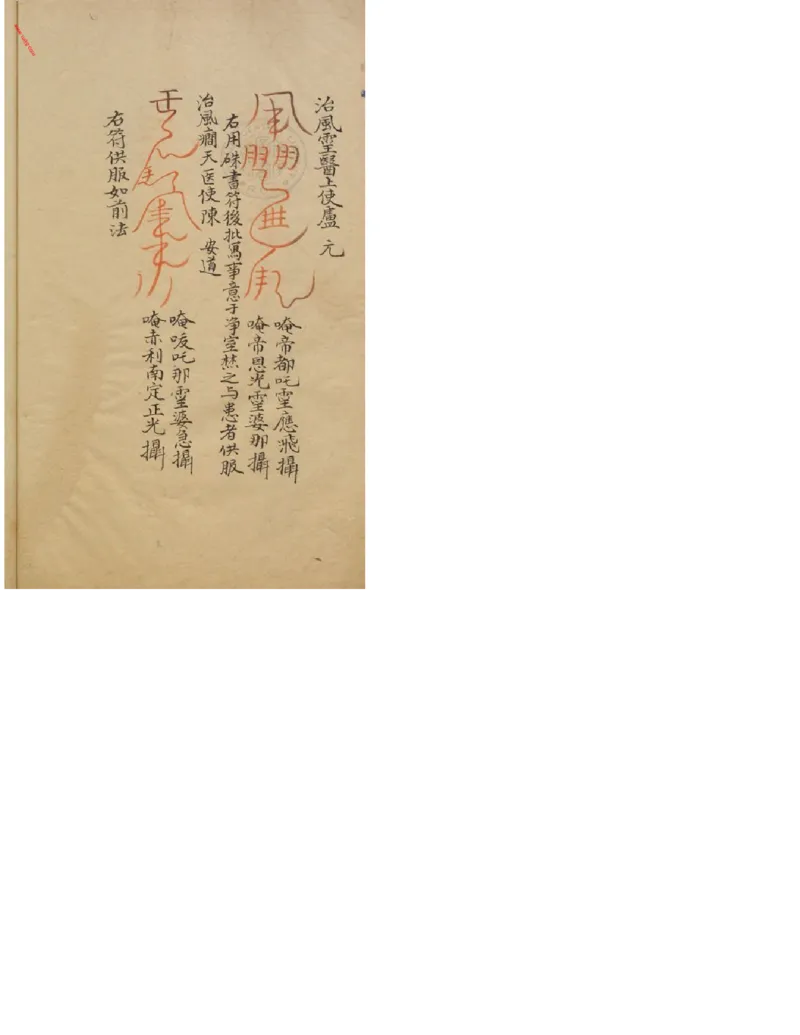 治風霊醫上使盧 元
唵帝都吒霊應飛攝
唵帝恩光霊婆那攝
右用硃書符後批寫事意于净室焚之与患者供服
治風癎天医使陳 安道
唵吱吒那霊婆急攝
唵赤利南定正光攝
右符供服如前法